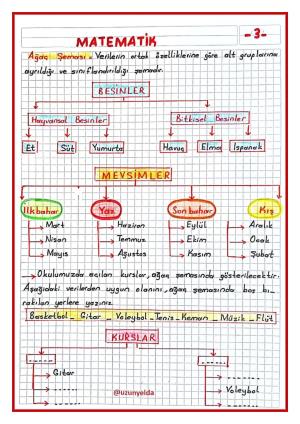 MATEMATİK
-3-
Ağaç Şeması - Verilerin ortak özelliklerine göre alt gruplarına
ayrıldığı ve sınıflandırıldığı şemadır.
BESİNLER
Hayvansal Besinler
Bitkisel Besinler
Et
Süt
Yumurta
Havuç
Elma
Ispanak
MEVSİMLER
İlkbahar
Yaz
Sonbahar
Kış
Mart
Haziran
Eylül
Aralık
Nisan
Temmuz
Ekim
Ocak
Mayıs
Ağustos
Kasım
Şubat
Okulumuzda açılan kurslar, ağaç şemasında gösterilecektir.
Aşağıdaki verilerden uygun olanını, ağaç şemasında boş bı-
rakılan yerlere yazınız.
Basketbol - Gitar - Voleybol - Tenis - Keman - Müzik - Flüt
KURSLAR
Gitar
Voleybol
@uzunyelda